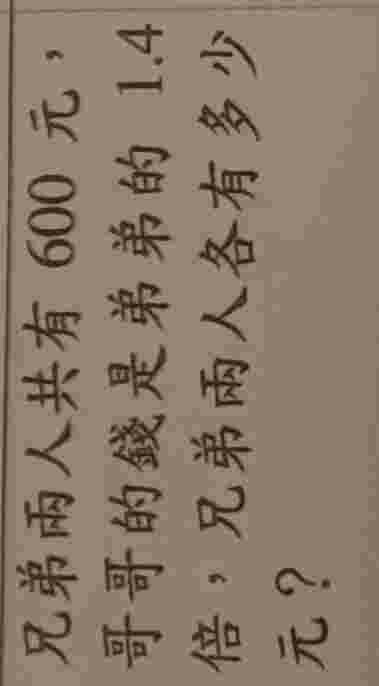 兄弟兩人共有 600 元，
哥哥的錢是弟弟的 1.4
倍，兄弟兩人各有多少
元？